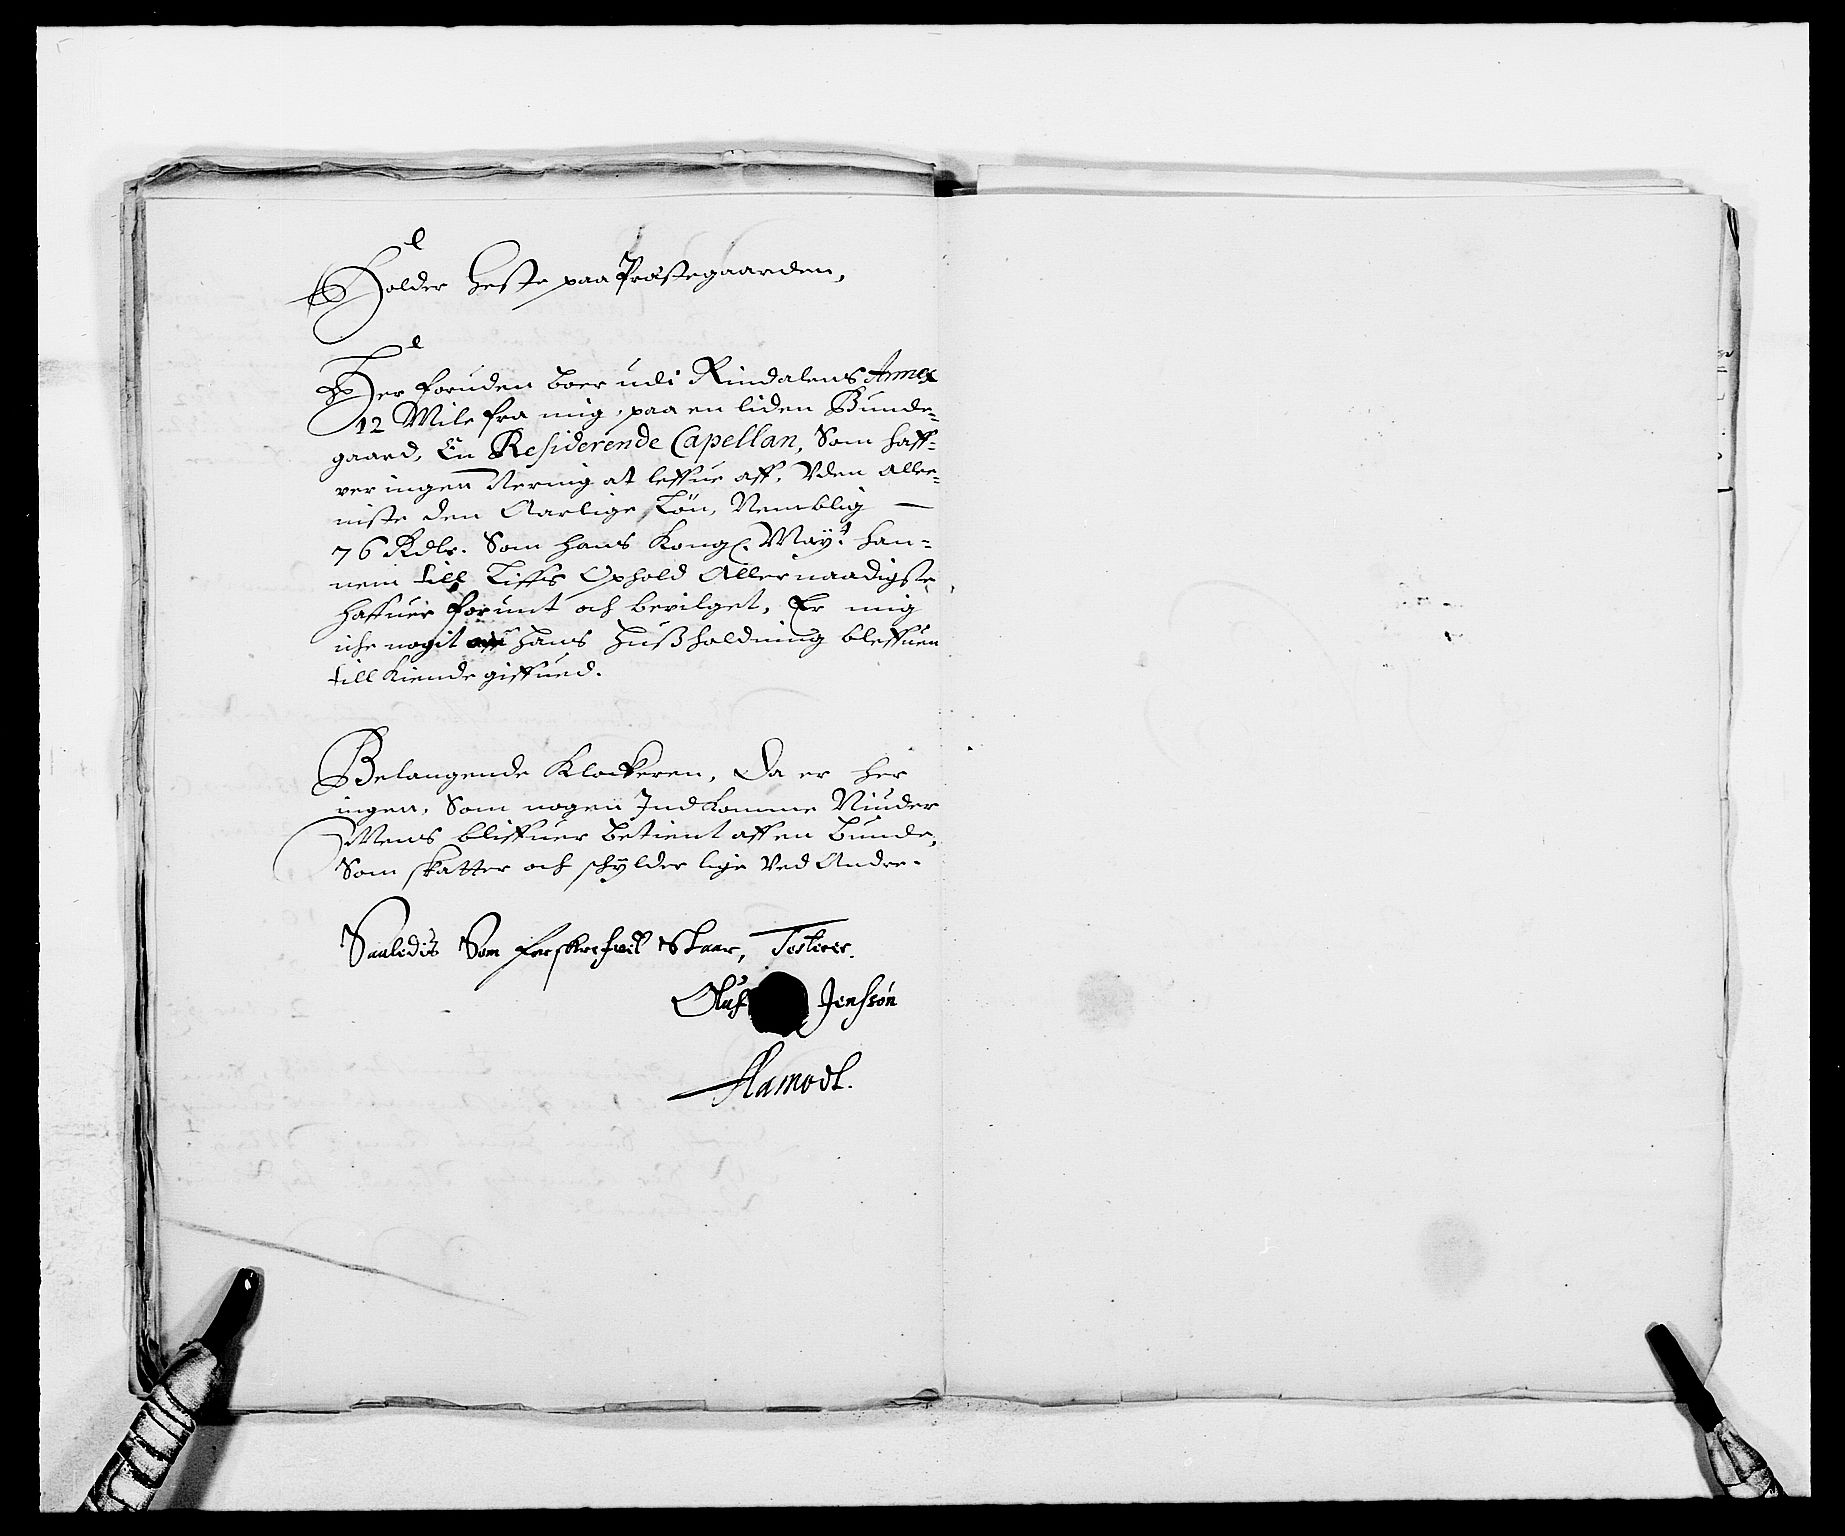 Holder Heste paa Præstegaarden,
Her foruden boer udi Rindalens Annex
12 Mile fra mig, paa en liden Bunde-
gaard, En Residerende Capellan, Som haff-
ver ingen Nering at leffue aff, Uden alle-
niste den Aarlige Løn, Nemblig —
76 Rdlr. Som hans Kongl. Mayt. han-
nem till Liffs Ophold Allernaadigste
haffuer forunt och bevilget, Er mig
iche nogit om hans Hußholdning bleffuen
till kiende giffued.
Belangende Klockeren, Da er her
ingen, Som nogen Indkomme Niuder
Mens bliffuer betient aff en Bunde,
Som skatter och schylder lige ved Andre.
Saaledis Som forskrefuet Staar, Testerer.
Oluf Jenssøn
Hamodt.